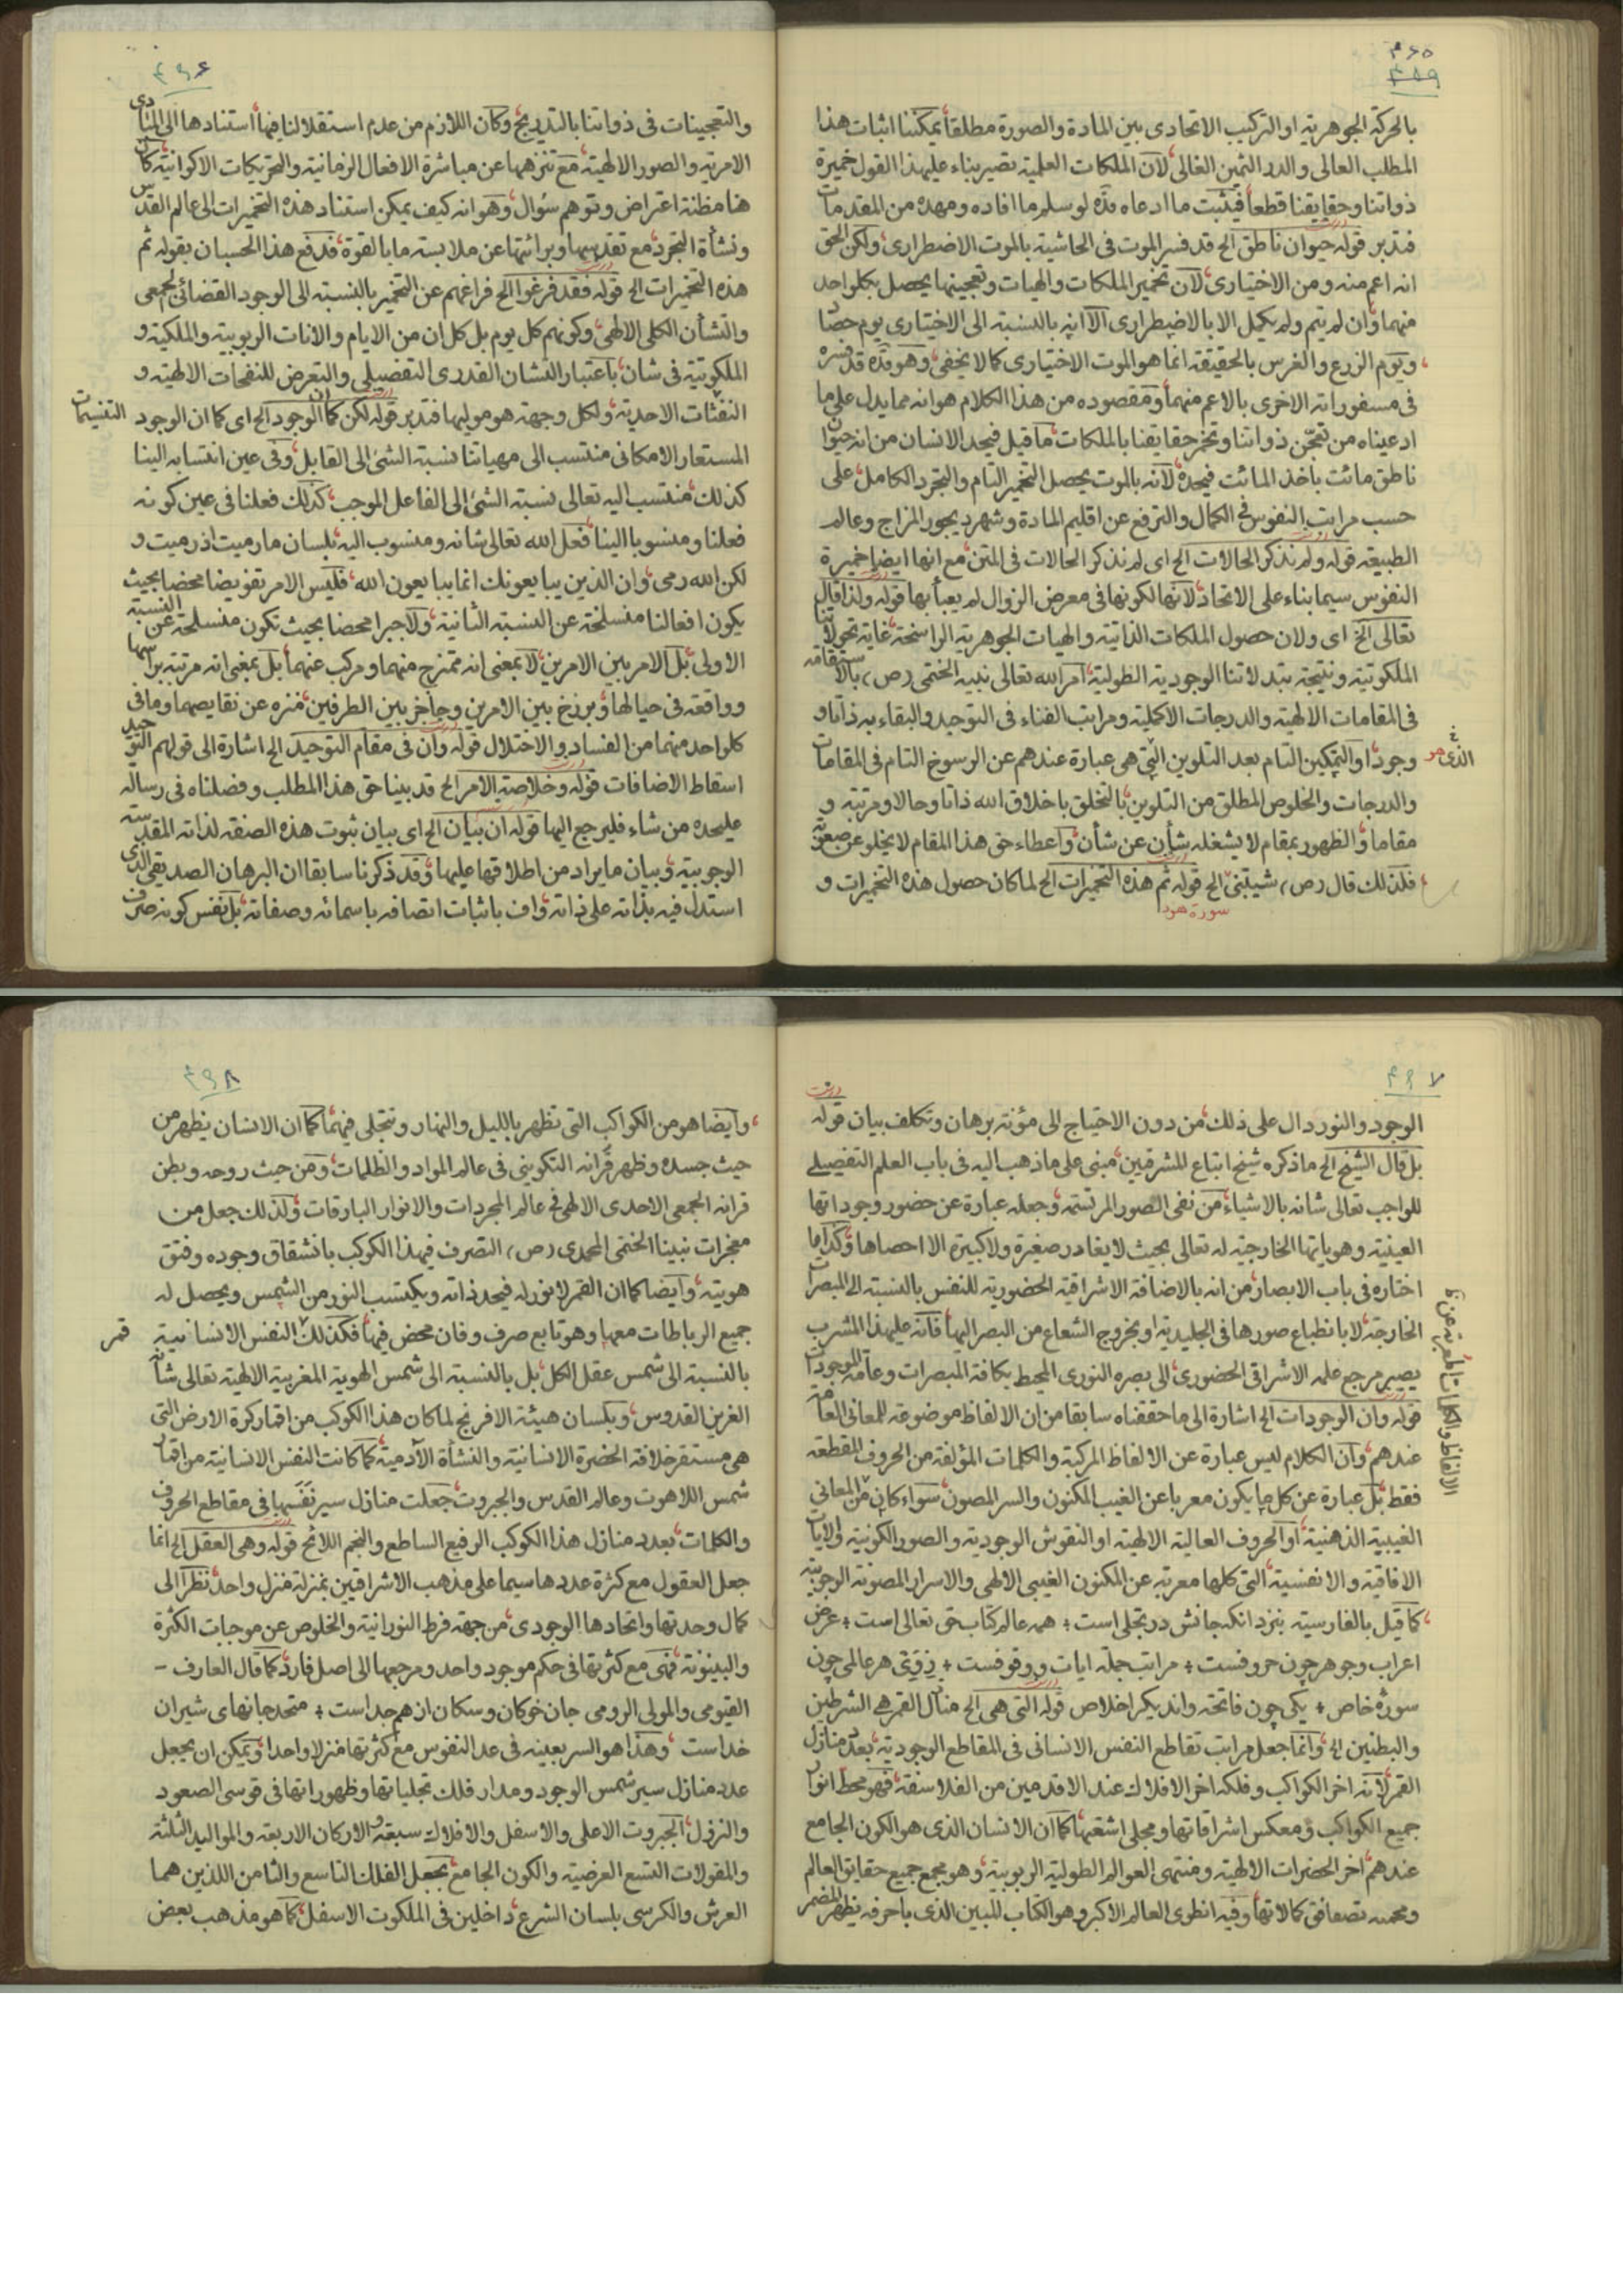 ۴۶۵
۴۵۹
بالحركة الجوهرية او التركيب الاتحادى بين المادة والصورة مطلقا يمكننا اثبات هذا
المطلب العالى والدر الثمين الغالى لان الملكات العلمية تصير بناء عليهذا القول خميرة
ذواتنا وحقايقنا قطعا فيثبت ما ادعاه قده لو سلم ما افاده ومهده من المقدمات
فتدبر قوله حيوان ناطق الخ قد فسر الموت فى الحاشية بالموت الاضطرارى ولكن الحق
انه اعم منه ومن الاختيارى لان تخمير الملكات والهيات وتعجينها يحصل بكلواحد
منهما وان لم يتم ولم يكمل الا بالاضطرارى الا انه بالنسبة الى الاختيارى يوم حصاد
ويوم الزرع والغرس بالحقيقة انما هو الموت الاختيارى كما لا يخفى وهو قده قد فسره
فى مسفوراته الاخرى بالاعم منهما ومقصوده من هذا الكلام هو انه مما يدل على ما
ادعيناه من تعجن ذواتنا وتخمر حقايقنا بالملكات ما قيل فيحد الانسان من انه حيوان
ناطق مائت باخذ المائت فيحده لانه بالموت يحصل التخمير التام والتجرد الكامل على
حسب مراتب النفوس فى الكمال والترفع عن اقليم المادة وشهر ديجور المزاج وعالم
الطبيعة قوله ولم نذكر الحالات الخ اى لم نذكر الحالات فى المتن مع انها ايضا خميرة
النفوس سيما بناء على الاتحاد لانها لكونها فى معرض الزوال لم يعبأ بها قوله ولذا قال
تعالى الخ اى ولان حصول الملكات الذاتية والهيات الجوهرية الراسخة غاية تحولاتنا
الملكوتية ونتيجة تبدلاتنا الوجودية الطولية امر الله تعالى نبيه الختمى (ص) بالاستقامة
فى المقامات الالهية والدرجات الاكملية ومراتب الفناء فى التوحيد والبقاء به ذاتا و
وجودا والتمكين التام بعد التلوين التى هى عبارة عندهم عن الرسوخ التام فى المقامات
الذى هو
والدرجات والخلوص المطلق من التلوين بالتخلق باخلاق الله ذاتا وحالا ومرتبة و
مقاما والظهور بمقام لا يشغله شأن عن شأن واعطاء حق هذا المقام لا يخلو عن صعوبة
فلذلك قال (ص) شيبتنى الخ قوله ثم هذه التخميرات الخ لما كان حصول هذه التخميرات و
سورة هود
۴۶۶
والتعجينات فى ذواتنا بالتدريج وكان اللازم من عدم استقلالنا فيها استنادها الى المبادى
الامرية والصور الالهية مع تنزهها عن مباشرة الافعال الزمانية والتحريكات الاكوانية كان
هنا مظنة اعتراض وتوهم سؤال وهو انه كيف يمكن استناد هذه التخميرات الى عالم القدس
ونشأة التجرد مع تقدسها وبرائتها عن ملابسة ما بالقوة فدفع هذا الحسبان بقوله ثم
هذه التخميرات الخ قوله فقد فرغوا الخ فراغهم عن التخمير بالنسبة الى الوجود القضائى الجمعى
والنشأن الكلى الالهى وكونهم كل يوم بل كل ان من الايام والانات الربوبية والملكية و
الملكوتية فى شان باعتبار النشان القدرى التفصيلى والتعرض للنفحات الالهية و
النفثات الاحدية ولكل وجهة هو موليها فتدبر قوله لكن كما ان الوجود الخ اى كما ان الوجود
المستعار الامكانى منتسب الى مهياتنا نسبة الشئ الى القابل وفى عين انتسابه الينا
كذلك منتسب اليه تعالى نسبة الشئ الى الفاعل الموجب كذلك فعلنا فى عين كونه
فعلنا ومنسوبا الينا فعل الله تعالى شانه ومنسوب اليه بلسان ما رميت اذ رميت و
لكن الله رمى وان الذين يبايعونك انما يبايعون الله فليس الامر تفويضا محضا بحيث
يكون افعالنا منسلخة عن النسبة الثانية ولا جبرا محضا بحيث تكون منسلخة عن النسبة
الاولى بل الامر بين الامرين لا بمعنى انه ممتزج منهما ومركب عنهما بل بمعنى انه مرتبة براسها
وواقعة فى حيالها وبرزخ بين الامرين وحاجز بين الطرفين منزه عن نقايصهما وما فى
كلواحد منهما من الفساد والاختلال قوله وان فى مقام التوحيد الخ اشارة الى قولهم التوحيد
اسقاط الاضافات قوله وخلاصة الامر الخ قد بينا حق هذا المطلب وفصلناه فى رسالة
عليحده من شاء فليرجع اليها قوله ان بيان الخ اى بيان ثبوت هذه الصفة لذاته المقدسة
الوجوبية وبيان ما يراد من اطلاقها عليها وقد ذكرنا سابقا ان البرهان الصديقى الذى
استدل فيه بذاته على ذاته واف باثبات اتصافه باسمائه وصفاته بل نفس كونه صرف
۴۶۷
الوجود والنور دال على ذلك من دون الاحتياج الى مؤنة برهان وتكلف بيان قوله
بل قال الشيخ الخ ما ذكره شيخ اتباع المشرقين مبنى على ما ذهب اليه فى باب العلم التفصيلى
للواجب تعالى شانه بالاشياء من نفى الصور المرتسمة وجعله عبارة عن حضور وجوداتها
العينية وهوياتها الخارجية له تعالى بحيث لا يغادر صغيرة ولا كبيرة الا احصاها وكذا ما
اختاره فى باب الابصار من انه بالاضافة الاشراقية الحضورية للنفس بالنسبة الى المبصرات
الخارجة لا بانطباع صورها فى الجليدية او بخروج الشعاع من البصر اليها فانه عليهذا المشرب
يصير مرجع علمه الاشراقى الحضورى الى بصره النورى المحيط بكافة المبصرات وعامة الموجودات
قوله وان الوجودات الخ اشارة الى ما حققناه سابقا من ان الالفاظ موضوعة للمعانى العامة
عندهم وان الكلام ليس عبارة عن الالفاظ المركبة والكلمات المؤلفة من الحروف المقطعة
فقط بل عبارة عن كل ما يكون معربا عن الغيب المكنون والسر المصون سواء كان من المعانى
الغيبية الذهنية او الحروف العالية الالهية او النقوش الوجودية والصور الكونية والايات
الافاقية والانفسية التى كلها معربة عن المكنون الغيبى الالهى والاسرار المصونة الوجوبية
كما قيل بالفارسية بنزد انكه جانش در تجلى است ؛ همه عالم كتاب حق تعالى است ؛ عرض
اعراب وجوهر چون حروفست ؛ مراتب جمله ايات وقوفست ؛ ازو هر عالمى چون
سورۀ خاص ؛ يكى چون فاتحه واند يكر اخلاص قوله التى هى الخ منازل القمر هى الشرطين
والبطين الخ وانما جعل مراتب تقاطع النفس الانسانى فى المقاطع الوجودية بعدد منازل
القمر لانه اخر الكواكب وفلكه اخر الافلاك عند الاقدمين من الفلاسفة فهو محط انوار
جميع الكواكب ومعكس اشراقاتها ومجلى اشعتها كما ان الانسان الذى هو الكون الجامع
عندهم اخر الحضرات الالهية ومنتهى العوالم الطولية الربوبية وهو مجمع جميع حقايق العالم
كمالاتها وفيه انطوى العالم الاكبر وهو الكتاب المبين الذى باحرفه يظهر المضمر
۴۶۸
وايضا هو من الكواكب التى تظهر بالليل والنهار وتتجلى فيهما كما ان الانسان يظهر من
حيث جسده وظهر قرانه التكوينى فى عالم المواد والظلمات ومن حيث روحه وبطن
قرانه الجمعى الاحدى الالهى فى عالم المجردات والانوار البارقات ولذلك جعل من
معجزات نبينا الختمى المحمدى (ص) التصرف فيهذا الكوكب بانشقاق وجوده وفتق
هويته وايضا كما ان القمر لا نور له فيحد ذاته ويكتسب النور من الشمس ويحصل له
جميع الرباطات معها وهو تابع صرف وفان محض فيها فكذلك النفس الانسانية
بالنسبة الى شمس عقل الكل بل بالنسبة الى شمس الهوية المغربية الالهية تعالى شانه
العزيز القدوس وبلسان هيئة الافرنج لما كان هذا الكوكب من اقمار كرة الارض التى
هى مستقر خلافة الحضرة الانسانية والنشأة الآدمية كما كانت النفس الانسانية من اقمار
شمس اللاهوت وعالم القدس والجبروت جعلت منازل سير نفسها فى مقاطع الحروف
والكلمات بعدد منازل هذا الكوكب الرفيع الساطع والنجم اللائح قوله وهى العقل الخ انما
جعل العقول مع كثرة عددها سيما على مذهب الاشراقيين بمنزلة منزل واحد نظرا الى
كمال وحدتها واتحادها الوجودى من جهة فرط النورانية والخلوص عن موجبات الكثرة
والبينونة فهى مع كثرتها فى حكم موجود واحد ومرجعها الى اصل فارد كما قال العارف -
القيومى والمولى الرومى جان خوكان وسكان از هم جداست ؛ متحد جانهاى شيران
خداست وهذا هو السر بعينه فى عد النفوس مع كثرتها منزلا واحدا ويمكن ان يجعل
عدد منازل سير شمس الوجود ومدار فلك تجلياتها وظهوراتها فى قوسى الصعود
والنزول الجبروت الاعلى والاسفل والافلاك سبعة والاركان الاربعة والمواليد الثلثة
والمقولات التسع العرضية والكون الجامع بجعل الفلك التاسع والثامن اللذين هما
العرش والكرسى بلسان الشرع داخلين فى الملكوت الاسفل كما هو مذهب بعض